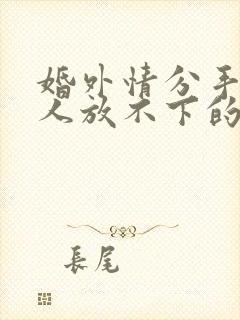 婚外情分手
人放不下的
長尾